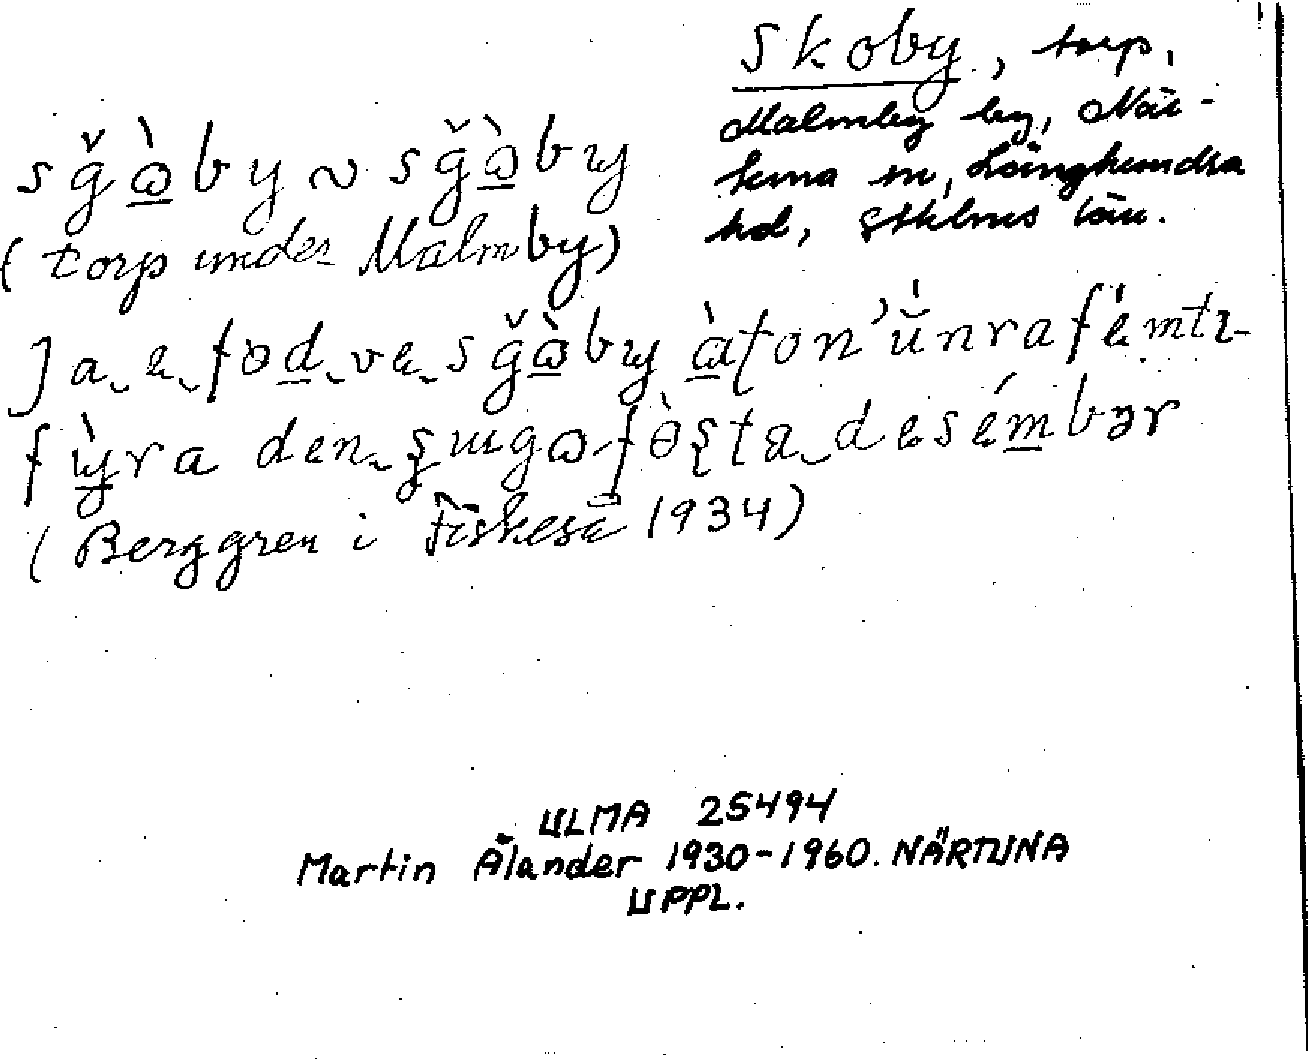 Skoby, torp,
Malmby by, När-
tuna sn, Långhundra
hd, Sthlms län.
sǧɷ̀by ~ sǧɷ̀by
(torp under Malmby)
ja‿e‿fod‿ve‿sǧɷ̀by àʈon'ŭ́nrafémtɪ-
fỳra den‿ʂugɷfɵ̀ʂʈa‿desémbər
(Berggren i Fiskeså 1934)
ULMA 25494
Martin Ålander 1930-1960. NÄRTUNA
UPPL.